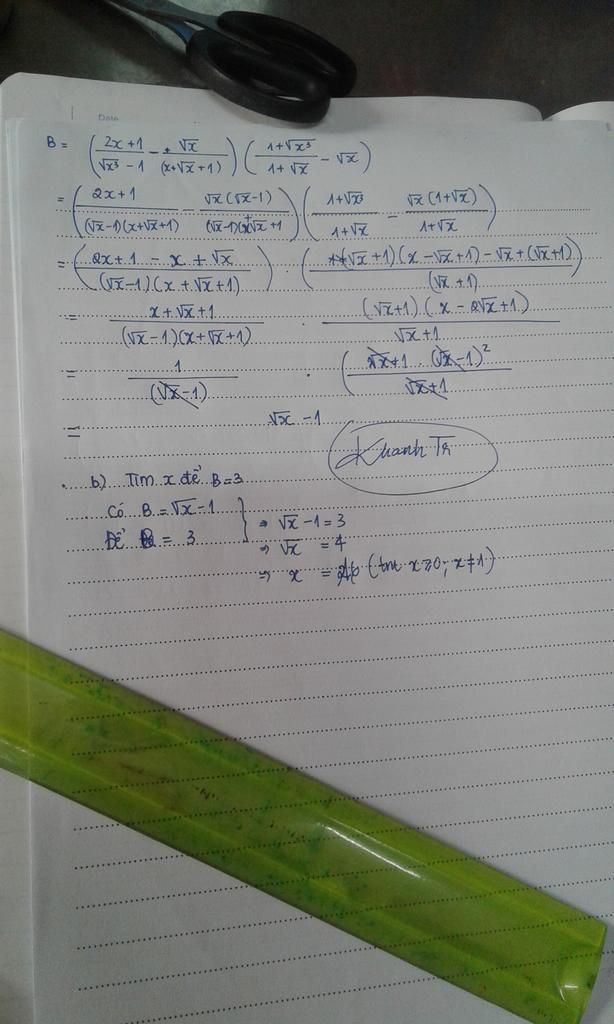 Date
B = ( (2x+1)/(√x³ - 1) - √x/(x+√x+1) ) ( (1+√x³)/(1+√x) - √x )
= ( (2x+1)/((√x-1)(x+√x+1)) - √x(√x-1)/((√x-1)(x+√x+1) ) ( (1+√x³)/(1+√x) - √x(1+√x)/(1+√x) )
= ( (2x+1 - x + √x)/((√x-1)(x+√x+1)) ) . ( (√x+1)(x-√x+1) - √x + (√x+1))/(√x+1) )
= (x+√x+1)/((√x-1)(x+√x+1)) . (√x+1)(x-2√x+1)/(√x+1)
= 1/(√x-1) . (√x+1 . (√x-1)²/(√x+1)
= √x - 1
Khanh Tr
b) Tìm x để B=3
Có B = √x-1 } ⇒ √x-1=3
Để B = 3 ⇒ √x = 4
⇒ x = 16 (tm x≥0; x≠1)